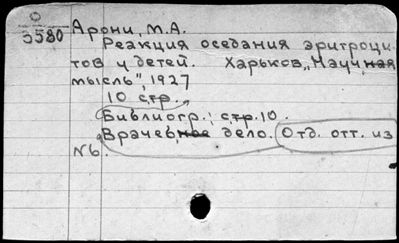 О
5580 Арони, М.А.
Реакция оседания эритроци-
тов у детей. Харьков, "Научная
мысль", 1927
10 стр.
Библиогр.: стр. 10.
Врачебное дело. Отд. отт. из
№6.